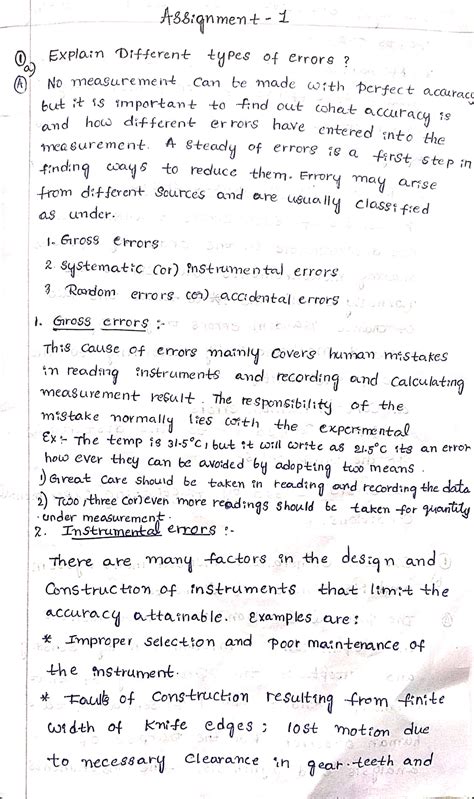 Assignment - 1
① a) Explain Different types of errors ?
Ⓐ No measurement can be made with perfect accuracy
but it is important to find out what accuracy is
and how different errors have entered into the
measurement. A steady of errors is a first step in
finding ways to reduce them. Errory may arise
from different sources and are usually classified
as under.
1. Gross errors
2. systematic (or) instrumental errors
3. Random errors (or) accidental errors
1. Gross errors :-
This cause of errors mainly covers human mistakes
in reading instruments and recording and calculating
measurement result. The responsibility of the
mistake normally lies with the expermental
Ex :- The temp is 31.5°c, but it will write as 21.5°c its an error
how ever they can be avoided by adopting two means.
1) Great care should be taken in reading and recording the data
2) Two, three (or) even more readings should be taken for quantity
under measurement.
2. Instrumental errors :-
There are many factors in the design and
Construction of instruments that limit the
accuracy attainable. Examples are :
* Improper selection and poor maintenance of
the instrument.
* Faults of construction resulting from finite
width of knife edges ; lost motion due
to necessary clearance in gear-teeth and